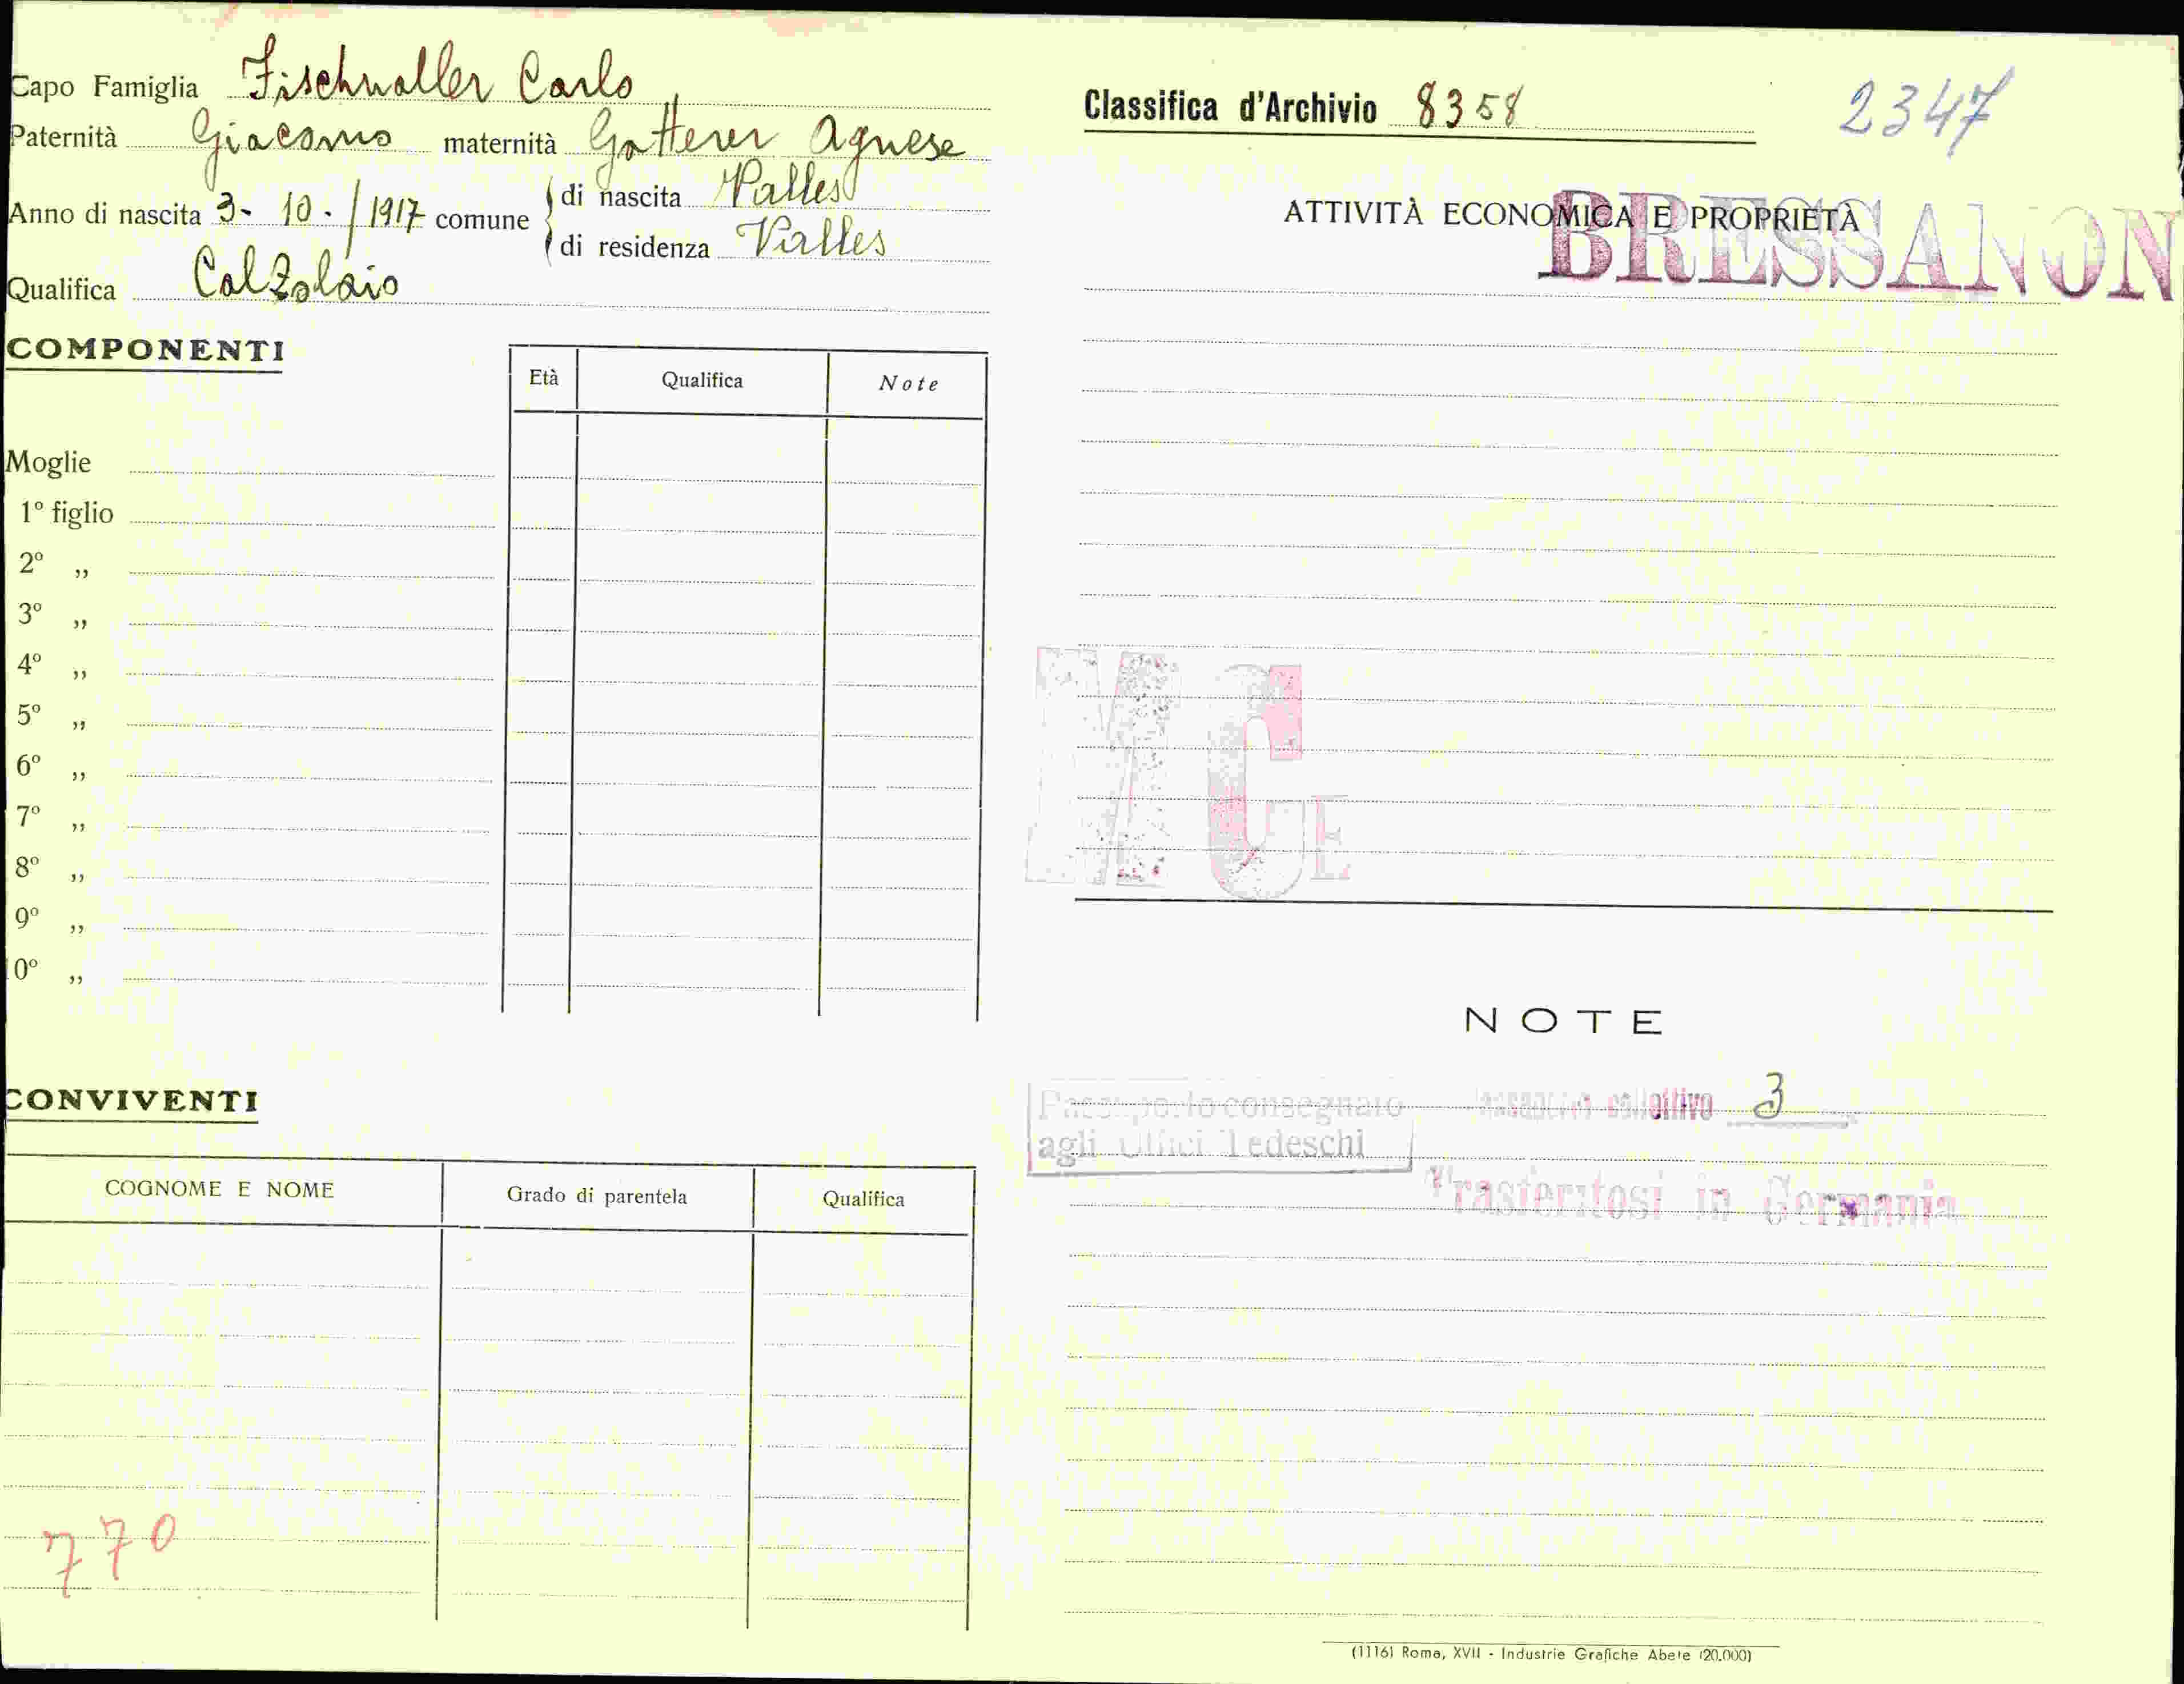 Capo Famiglia Fischnaller Carlo
Paternità Giacomo maternità Gatterer Agnese
Anno di nascita 3- 10 - / 1917 comune di nascita Valles
di residenza Valles
Qualifica Calzolaio
COMPONENTI
Età Qualifica Note
Moglie
1º figlio
2º „
3º „
4º „
5º „
6º „
7º „
8º „
9º „
0º „
CONVIVENTI
COGNOME E NOME Grado di parentela Qualifica
770
Classifica d'Archivio 8358
2347
ATTIVITÀ ECONOMICA E PROPRIETÀ
BRESSANON
M C E
NOTE
Passaporto consegnato
agli Uffici Tedeschi
collettivo 3
Trasferitosi in Germania
(1116) Roma, XVII - Industrie Grafiche Abete (20.000)